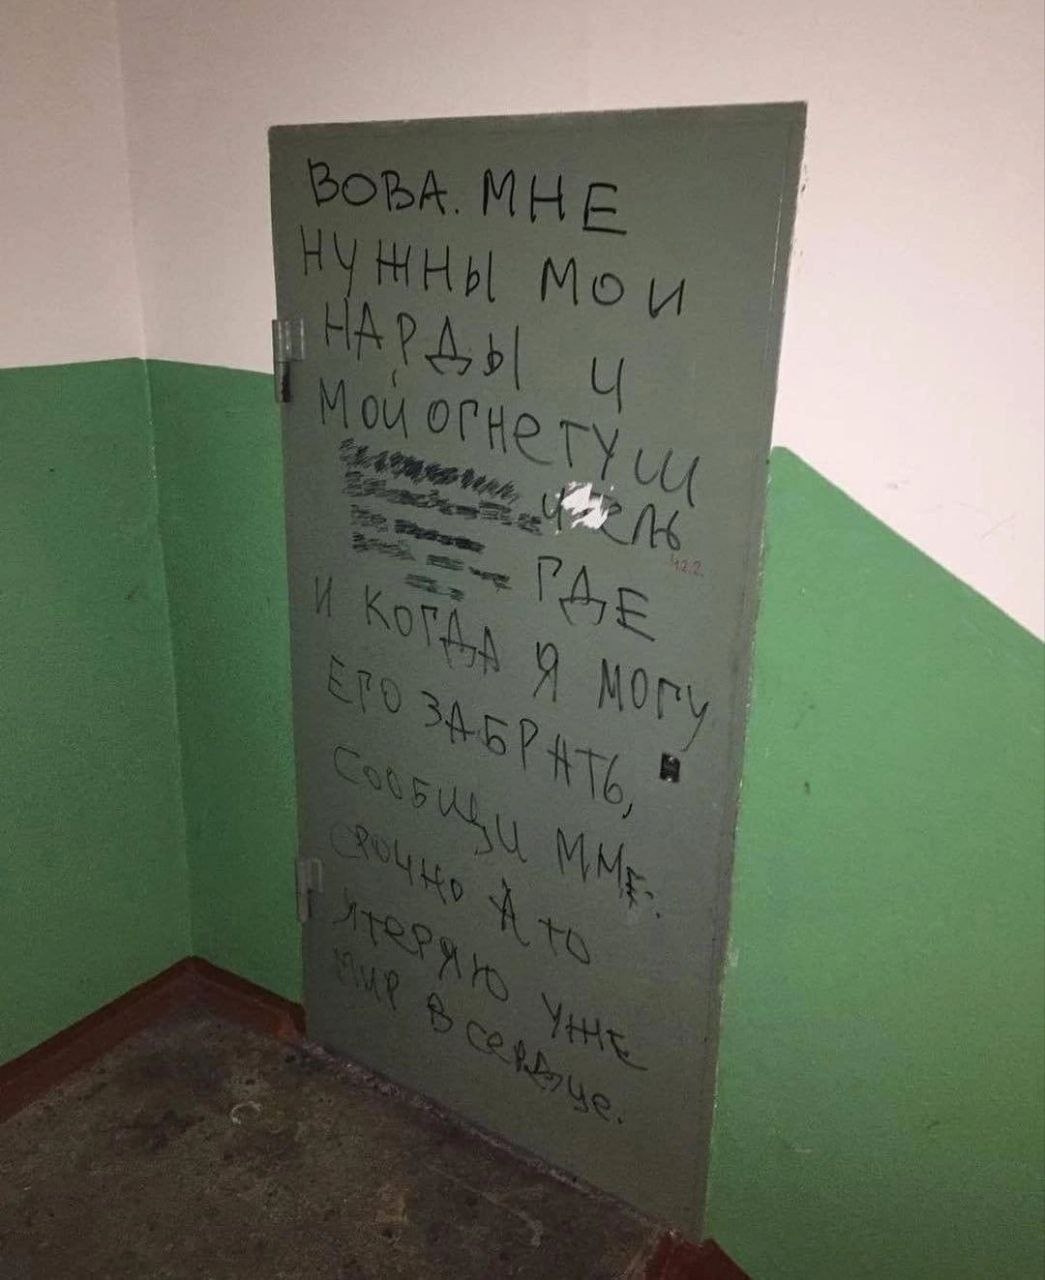 ВОВА. МНЕ
НУЖНЫ МОИ
НАРДЫ И
МОЙ ОГНЕТУШ
ИТЕЛЬ
422.
ГДЕ
И КОГДА Я МОГУ
ЕГО ЗАБРАТЬ,
СООБЩИ МНЕ.
СРОЧНО А ТО
Я ТЕРЯЮ УЖЕ
МИР В СЕРДЦЕ.